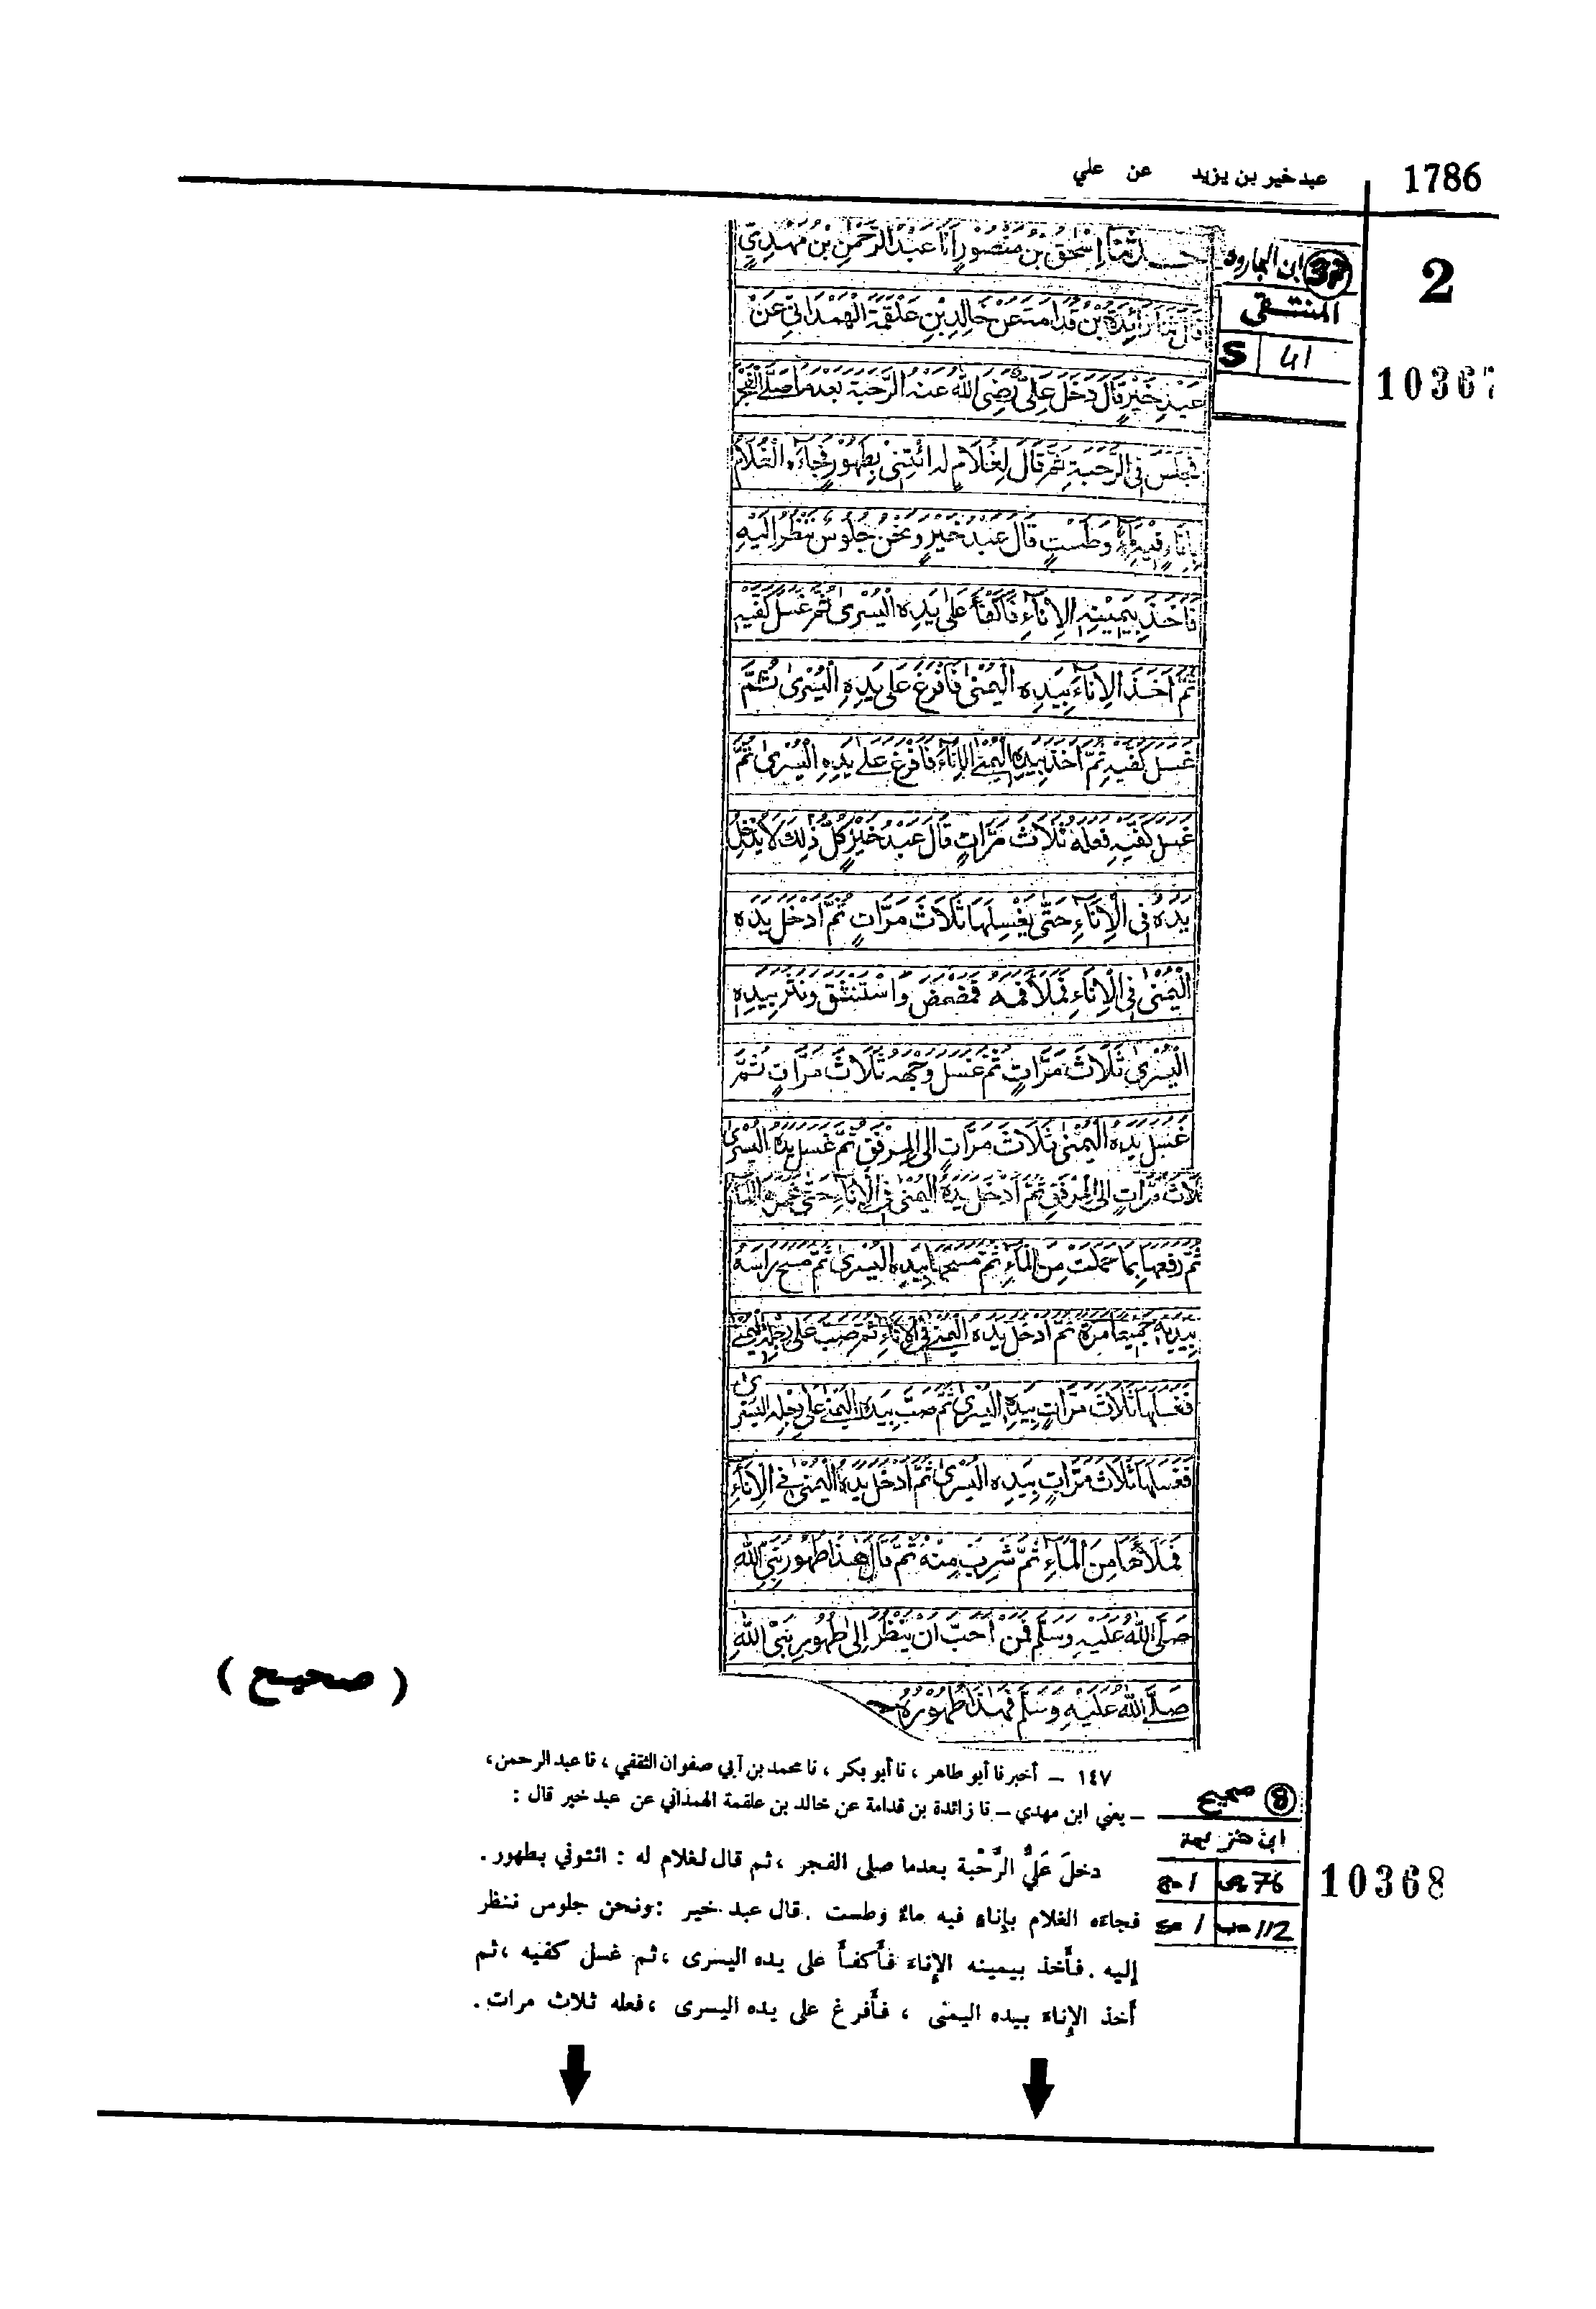 1786
عبد خير بن يزيد عن علي
2
10367
37 ابن الجارود
المنتقى
S 41
حدثنا إِسْحٰقُ بْنُ مَنْصُورٍ أَنَا عَبْدُ الرَّحْمٰنِ بْنُ مَهْدِيٍّ
قَالَ ثَنَا زَائِدَةُ بْنُ قُدَامَةَ عَنْ خَالِدِ بْنِ عَلْقَمَةَ الْهَمْدَانِيِّ عَنْ
عَبْدِ خَيْرٍ قَالَ دَخَلَ عَلِيٌّ رَضِيَ اللّٰهُ عَنْهُ الرَّحَبَةَ بَعْدَ مَا صَلَّى الْفَجْرَ
فَجَلَسَ فِي الرَّحَبَةِ ثُمَّ قَالَ لِغُلَامٍ لَهُ ائْتِنِي بِطَهُورٍ فَجَاءَهُ الْغُلَامُ
بِإِنَاءٍ فِيْهِ مَاءٌ وَطَسْتٍ قَالَ عَبْدُ خَيْرٍ وَنَحْنُ جُلُوسٌ نَنْظُرُ إِلَيْهِ
فَأَخَذَ بِيَمِيْنِهِ الْإِنَاءَ فَأَكْفَأَ عَلَى يَدِهِ الْيُسْرَى ثُمَّ غَسَلَ كَفَّيْهِ
ثُمَّ أَخَذَ الْإِنَاءَ بِيَدِهِ الْيُمْنَى فَأَفْرَغَ عَلَى يَدِهِ الْيُسْرَى ثُمَّ
غَسَلَ كَفَّيْهِ ثُمَّ أَخَذَ بِيَدِهِ الْيُمْنَى الْإِنَاءَ فَأَفْرَغَ عَلَى يَدِهِ الْيُسْرَى ثُمَّ
غَسَلَ كَفَّيْهِ فَعَلَهُ ثَلَاثَ مَرَّاتٍ قَالَ عَبْدُ خَيْرٍ كُلُّ ذٰلِكَ لَا يُدْخِلُ
يَدَهُ فِي الْإِنَاءِ حَتَّى يَغْسِلَهَا ثَلَاثَ مَرَّاتٍ ثُمَّ أَدْخَلَ يَدَهُ
الْيُمْنَى فِي الْإِنَاءِ فَمَلَأَ فَمَهُ فَمَضْمَضَ وَاسْتَنْشَقَ وَنَثَرَ بِيَدِهِ
الْيُسْرَى ثَلَاثَ مَرَّاتٍ ثُمَّ غَسَلَ وَجْهَهُ ثَلَاثَ مَرَّاتٍ ثُمَّ
غَسَلَ يَدَهُ الْيُمْنَى ثَلَاثَ مَرَّاتٍ إِلَى الْمِرْفَقِ ثُمَّ غَسَلَ يَدَهُ الْيُسْرَى
ثَلَاثَ مَرَّاتٍ إِلَى الْمِرْفَقِ ثُمَّ أَدْخَلَ يَدَهُ الْيُمْنَى فِي الْإِنَاءِ حَتَّى غَمَرَهَا الْمَاءُ
ثُمَّ رَفَعَهَا بِمَا حَمَلَتْ مِنَ الْمَاءِ ثُمَّ مَسَحَهَا بِيَدِهِ الْيُسْرَى ثُمَّ مَسَحَ رَأْسَهُ
بِيَدَيْهِ جَمِيْعًا مَرَّةً ثُمَّ أَدْخَلَ يَدَهُ الْيُمْنَى فِي الْإِنَاءِ ثُمَّ صَبَّ عَلَى رِجْلِهِ الْيُمْنَى
فَغَسَلَهَا ثَلَاثَ مَرَّاتٍ بِيَدِهِ الْيُسْرَى ثُمَّ صَبَّ بِيَدِهِ الْيُمْنَى عَلَى رِجْلِهِ الْيُسْرَى
فَغَسَلَهَا ثَلَاثَ مَرَّاتٍ بِيَدِهِ الْيُسْرَى ثُمَّ أَدْخَلَ يَدَهُ الْيُمْنَى فِي الْإِنَاءِ
فَمَلَأَهَا مِنَ الْمَاءِ ثُمَّ شَرِبَ مِنْهُ ثُمَّ قَالَ هٰذَا طُهُوْرُ نَبِيِّ اللّٰهِ
صَلَّى اللّٰهُ عَلَيْهِ وَسَلَّمَ فَمَنْ أَحَبَّ أَنْ يَنْظُرَ إِلَى طُهُوْرِ نَبِيِّ اللّٰهِ
صَلَّى اللّٰهُ عَلَيْهِ وَسَلَّمَ فَهٰذَا طُهُوْرُهُ
( صحيح )
١٤٧ – أخبرنا أبو طاهر ، نا أبو بكر ، نا محمد بن أبي صفوان الثقفي ، نا عبد الرحمن ،
– يعني ابن مهدي – نا زائدة بن قدامة عن خالد بن علقمة الهمذاني عن عبد خير قال :
8 صحيح
ابن خزيمة
10368
ج 1 ص 76
ح 1 ب 112
دخلَ عَليٌّ الرَّحْبة بعدما صلى الفجر ، ثم قال لغلام له : ائتوني بطهور .
فجاءه الغلام بإناءٍ فيه ماءٌ وطست . قال عبد خير : ونحن جلوس ننظر
إليه . فأَخذ بيمينه الإِناءَ فأَكفأَ على يده اليسرى ، ثم غسل كفيه ، ثم
أخذ الإِناءَ بيده اليمنى ، فأَفرغ على يده اليسرى ، فعله ثلاث مرات .